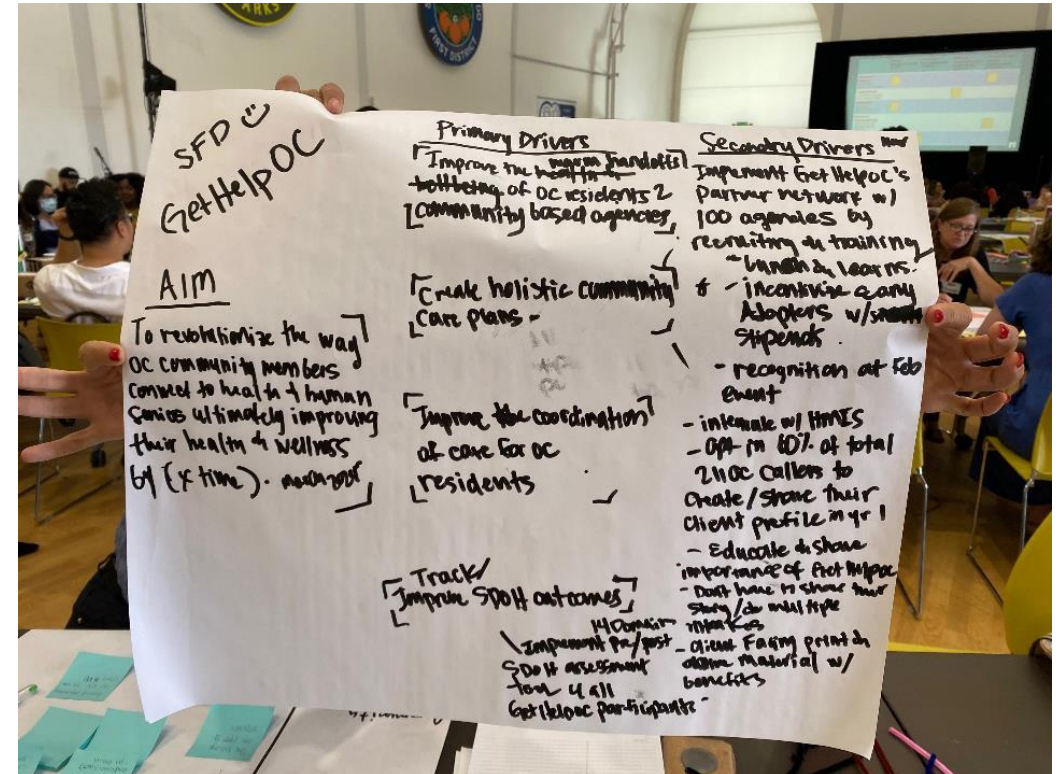 ARKS
FIRST DISTRICT
SFD
GetHelpOC
AIM
To revolutionize the way
OC community members
connect to health & human
services ultimately improving
their health & wellness
by (x time).
Primary Drivers
Improve the warm handoffs
health &
wellbeing of OC residents 2
community based agencies
Create holistic community
care plans -
Improve the coordination
of care for OC
residents
Track/
Improve SDoH outcomes
14 Domain
Implement pre/post
SDoH assessment
tool 4 all
GetHelpOC participants
Secondary Drivers
Implement GetHelpOC's
Partner network w/
100 agencies by
recruiting & training
- lunch & learns.
* - incentivize early
Adopters w/
stipends
- recognition at Feb
event
- integrate w/ HMIS
- opt in 60% of total
211OC callers to
create/share their
client profile in yr 1
- Educate & share
importance of GetHelpOC
- Don't have to share their
story/do multiple
intakes
- client facing print &
online material w/
benefits